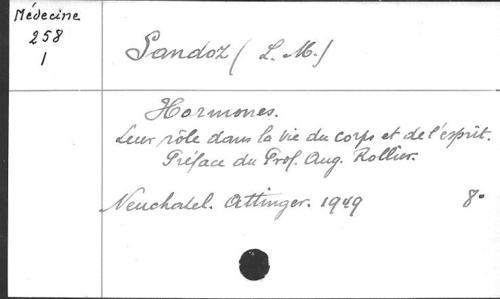 Médecine
258
1
Sandoz (L. M.)
Hormones.
Leur rôle dans la vie du corps et de l'esprit.
Préface du Prof. Aug. Rollier.
Neuchatel. Attinger. 1949 8º